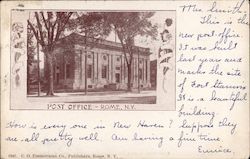 Mrs. Smith
This is the
new post office.
It was built
last years and
marks the site
of Fort Stanwix
It is a beautiful
building.
POST OFFICE - ROME, N.Y.
How is every one in New Haven? I suppose they
are all pretty well. Am having a fine time
Eunice.
Co. Publishers, Rome, N. Y.